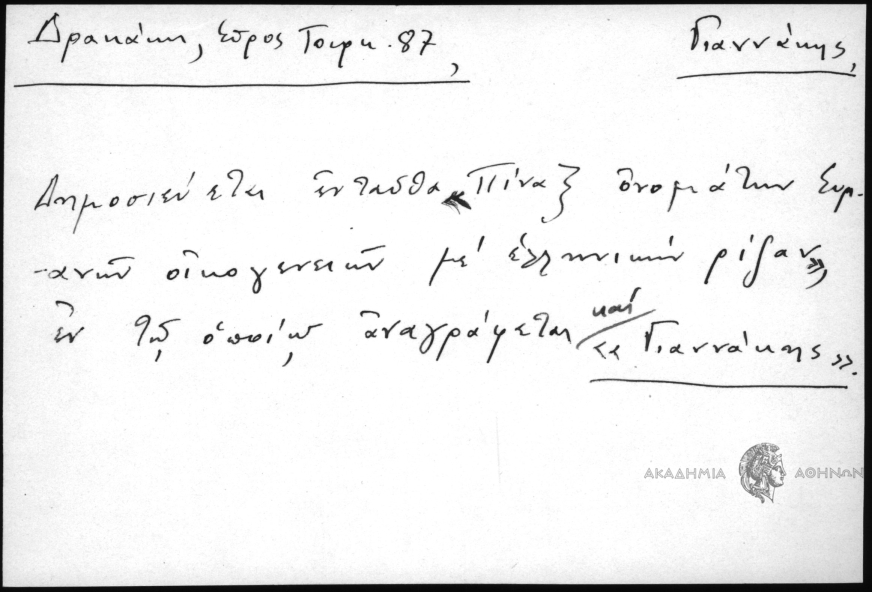 Δρακάκη, Σῦρος Τουρκ. 87, Γιαννάκης,
Δημοσιεύεται ἐνταῦθα «Πίναξ ὀνομάτων Συρ-
-ανῶν οἰκογενειῶν μέ ἑλληνικήν ρίζαν»,
ἐν τῷ ὁποίῳ ἀναγράφεται καί «Γιαννάκης».
ΑΚΑΔΗΜΙΑ ΑΘΗΝΩΝ